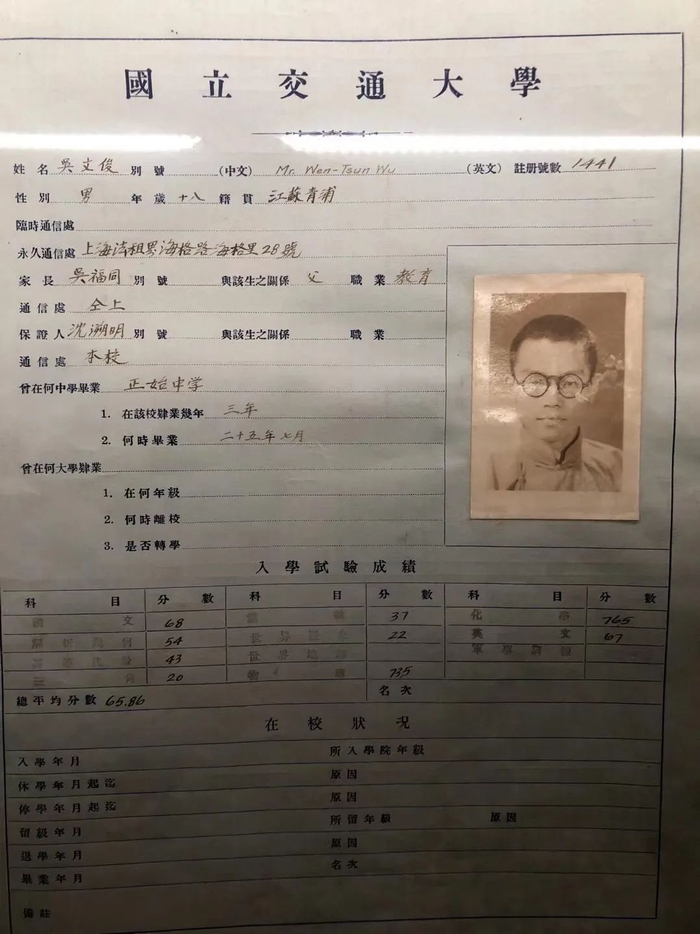 國立交通大學
姓名 吳文俊 別號 (中文) Mr. Wen-Tsun Wu (英文) 註册號數 1441
性別 男 年歲 十八 籍貫 江蘇青浦
臨時通信處
永久通信處 上海法租界海格路海格里28號
家長 吳福同 別號 與該生之關係 父 職業 教育
通信處 仝上
保證人 沈溯明 別號 與該生之關係 職業
通信處 本校
曾在何中學畢業 正始中学
1. 在該校肄業幾年 三年
2. 何時畢業 二十五年七月
曾在何大學肄業
1. 在何年級
2. 何時離校
3. 是否轉學
入學試驗成績
科目 分數 科目 分數 科目 分數
文 68 37 化 765
54 22 英文 67
43
20 735
總平均分數 65.86 名次
在校狀况
入學年月 所入學院年級
休學年月起迄 原因
停學年月起迄 原因
留級年月 所留年級 原因
退學年月 原因
畢業年月 名次
備註